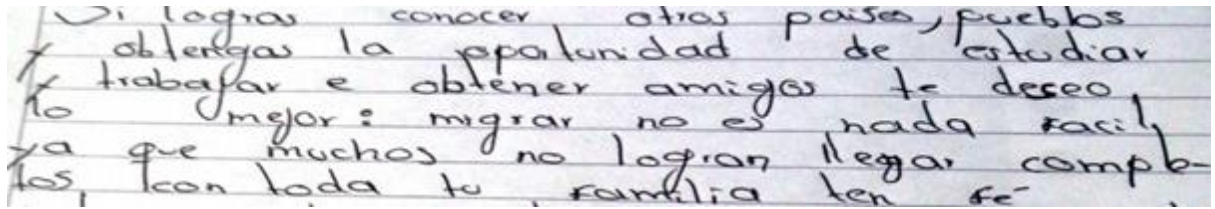 Si logras conocer otros paises, pueblos
y obtengas la oportunidad de estudiar
y trabajar e obtener amigos te deseo
lo mejor: migrar no es nada facil,
ya que muchos no logran llegar comple-
tos, con toda tu familia ten fe